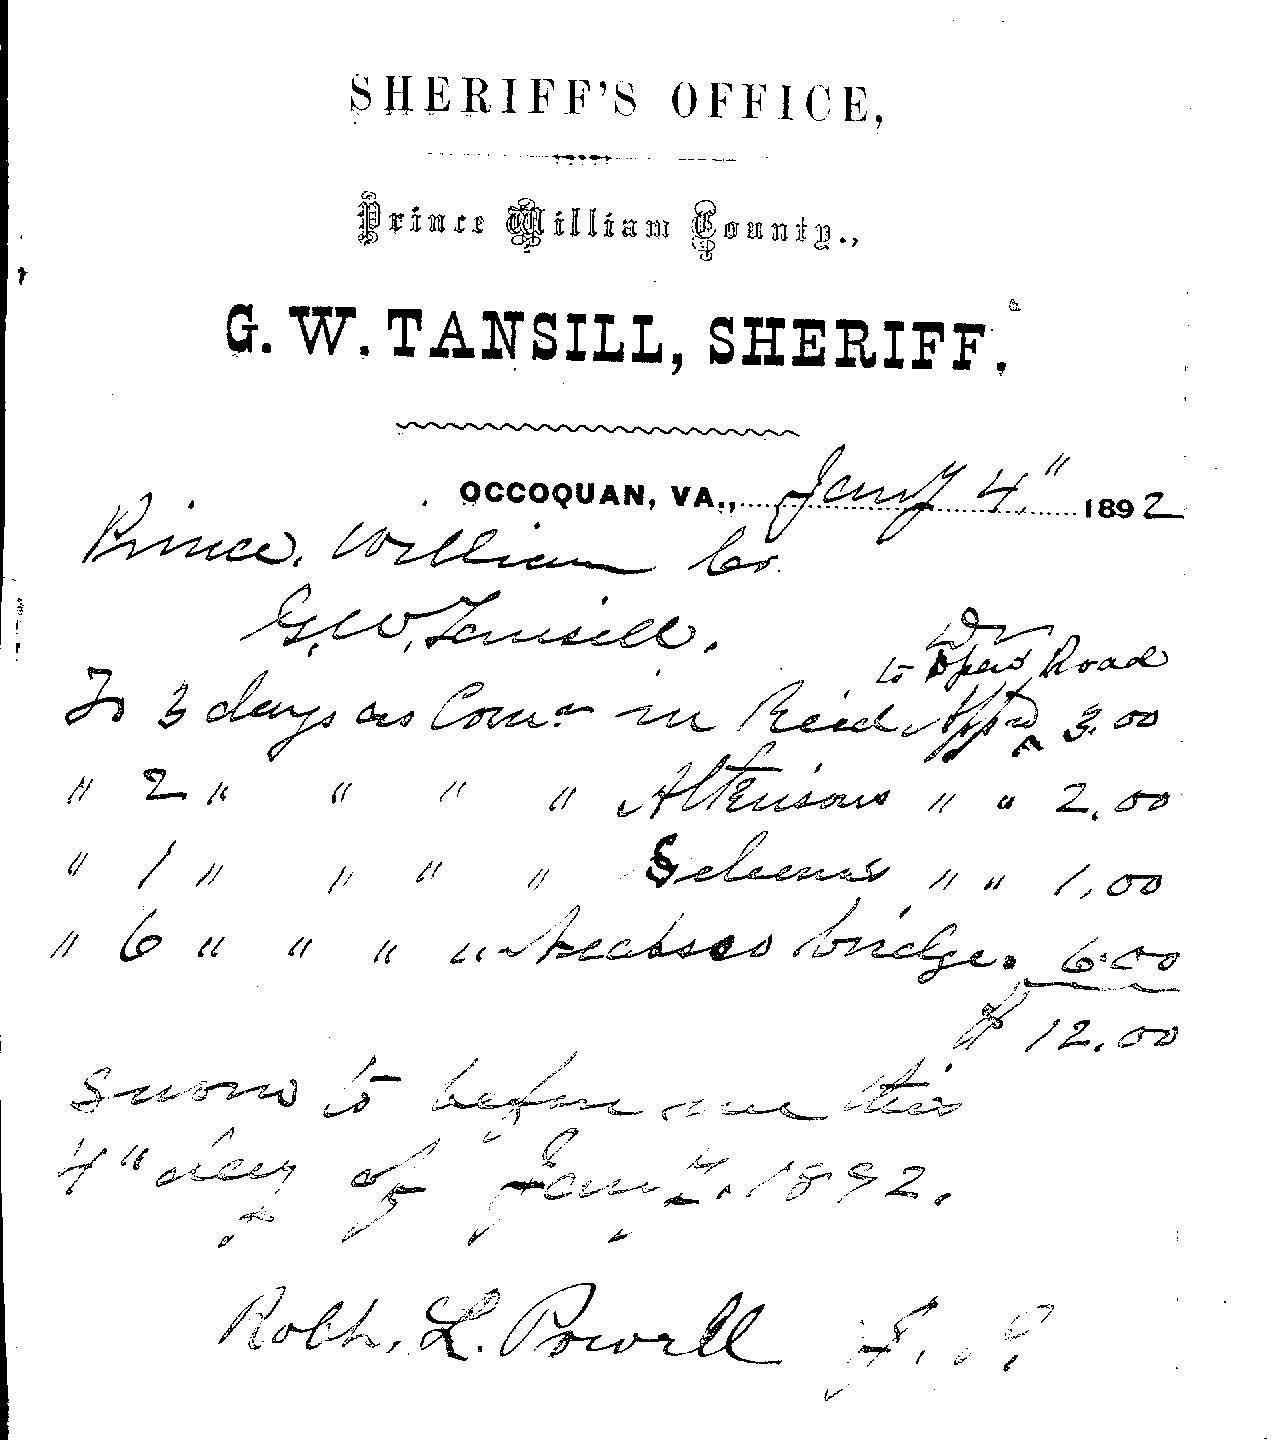 SHERIFF'S OFFICE,
Prince William County.,
G. W. TANSILL, SHERIFF.
OCCOQUAN, VA., Jany 4" 1892
Prince William Co.
G. W. Tansill. Dr
to open Road
To 3 days as Comr in Reid Appn 3.00
" 2 " " " " Atkinsons " " 2.00
" 1 " " " " " " 1.00
" 6 " " " " bridge. 6.00
$ 12.00
Sworn to before me this
4" day of Jany. 1892.
Robt. L. Powell J. P.